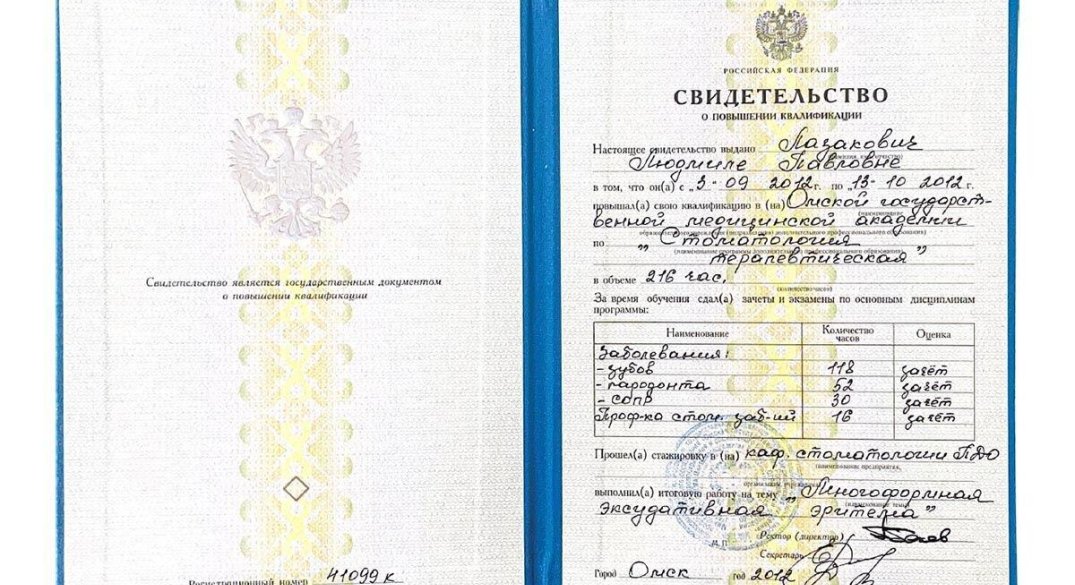 Свидетельство является государственным документом
о повышении квалификации
Регистрационный номер 41099 к
РОССИЙСКАЯ ФЕДЕРАЦИЯ
СВИДЕТЕЛЬСТВО
О ПОВЫШЕНИИ КВАЛИФИКАЦИИ
Настоящее свидетельство выдано Лазакович
Людмиле Павловне
в том, что он(а) с „3-09 2012 г. по „13-10 2012 г.
повышал(а) свою квалификацию в (на) Омской государст-
венной медицинской академии
по „Стоматология
терапевтическая"
в объеме 216 час.
(количество часов)
За время обучения сдал(а) зачеты и экзамены по основным дисциплинам
программы:
Наименование Количество часов Оценка
Заболевания:
- зубов 118 зачёт
- пародонта 52 зачёт
- СОПР 30 зачёт
Проф-ка стом. заб-ий 16 зачёт
Прошел(а) стажировку в (на) каф. стоматологии ПДО
(наименование предприятия,
выполнил(а) итоговую работу на тему „Многоформная
экссудативная эритема"
Ректор (директор)
М. П.
Секретарь
Город Омск год 2012